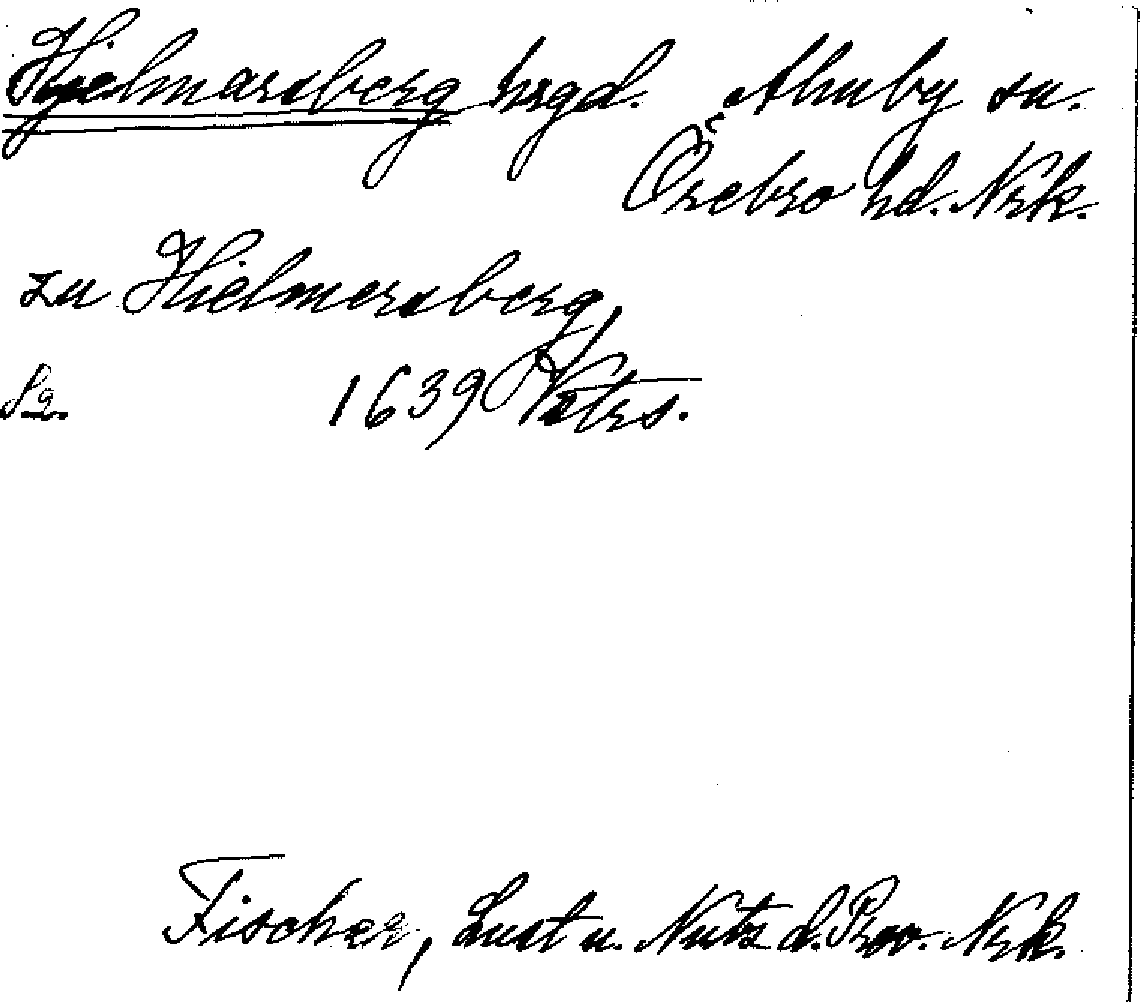 Hjelmarsberg hrgd. Almby sn.
Örebro hd. Nrk.
zu Hielmersberg,
1639
Fischer, Lust u. Nutz d. Prov. Nrk.